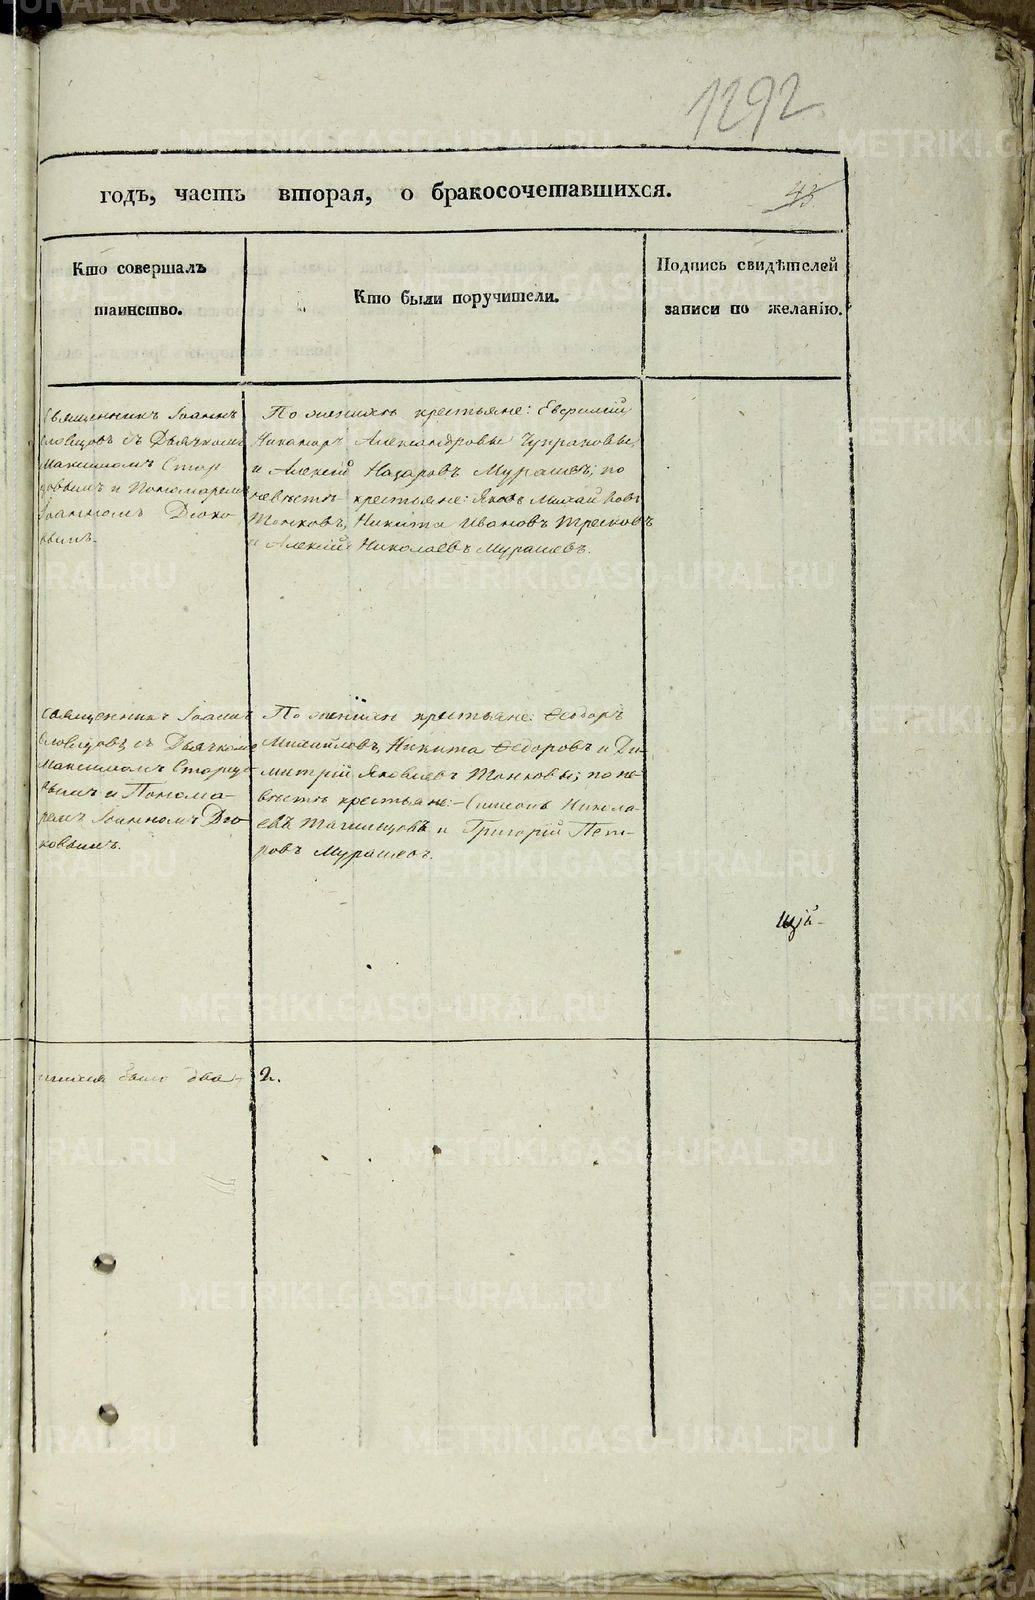 1292
годъ, часть вторая, о бракосочетавшихся.
43
Кто совершалъ
таинство.
Кто были поручители.
Подпись свидѣтелей
записи по желанію.
Священникъ Іоаннъ
Словцовъ съ Дьячкомъ
Максимомъ Стар
цовымъ и Пономаремъ
Іоанномъ Дюко
вымъ.
По женихѣ крестьяне: Евфимій
Никаноръ Александровы Чупраковы,
и Алексій Назаровъ Мурашевъ; по
невѣстѣ крестьяне: Яковъ Михайловъ
Тонковъ, Никита Ивановъ Тресковъ
и Алексій Николаевъ Мурашевъ.
Священникъ Іоаннъ
Словцовъ съ Дьячкомъ
Максимомъ Старцо
вымъ и Понома-
ремъ Іоанномъ Дю-
ковымъ.
По женихѣ крестьяне: Ѳеодоръ
Михайловъ, Никита Ѳедоровъ и Ди-
митрій Яковлевъ Тонковы; по не-
вѣстѣ крестьяне:- Симеонъ Никола-
евъ Тагильцовъ и Григорій Пет-
ровъ Мурашевъ.
было два 2.
METRIKI.GASO-URAL.RU